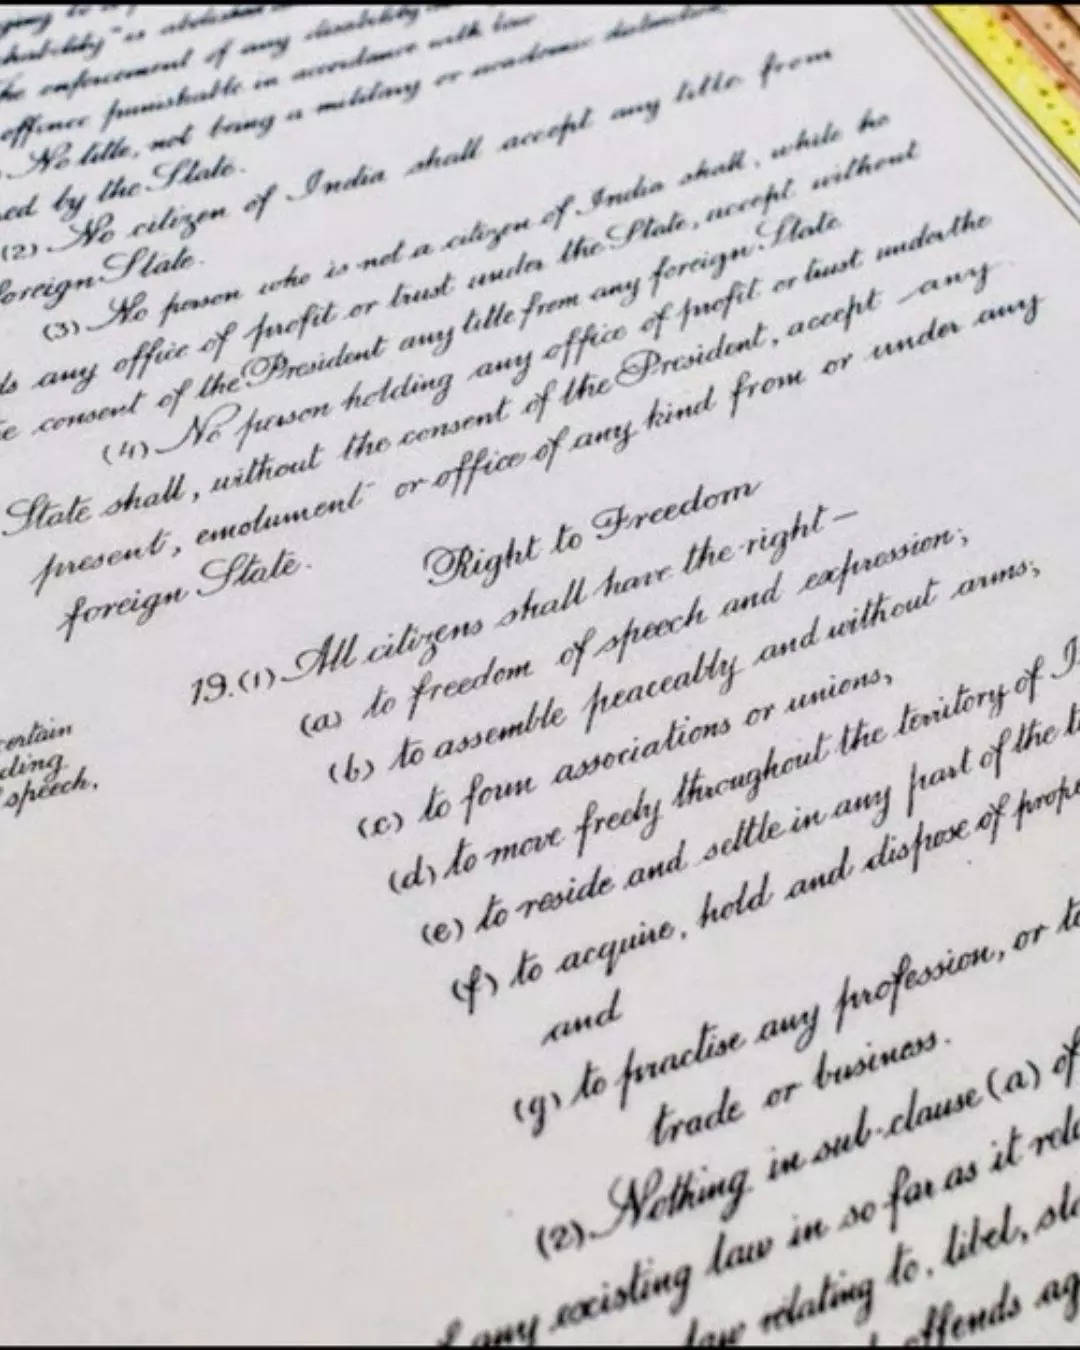 ability" is abolished
The enforcement of any disability
offence punishable in accordance with law
No title, not being a military or academic distinction,
ed by the State.
(2) No citizen of India shall accept any title from
foreign State.
(3) No person who is not a citizen of India shall, while he
ds any office of profit or trust under the State, accept without
e consent of the President any title from any foreign State
(4) No person holding any office of profit or trust under the
State shall, without the consent of the President, accept any
present, emolument or office of any kind from or under any
foreign State.
Right to Freedom
19.(1) All citizens shall have the right —
(a) to freedom of speech and expression;
(b) to assemble peaceably and without arms;
(c) to form associations or unions,
(d) to move freely throughout the territory of I
(e) to reside and settle in any part of the t
(f) to acquire, hold and dispose of prope
and
(g) to practise any profession, or to
trade or business.
certain
ding
speech,
(2) Nothing in sub-clause (a) of
any existing law in so far as it rela
law relating to, libel, sla
offends ag